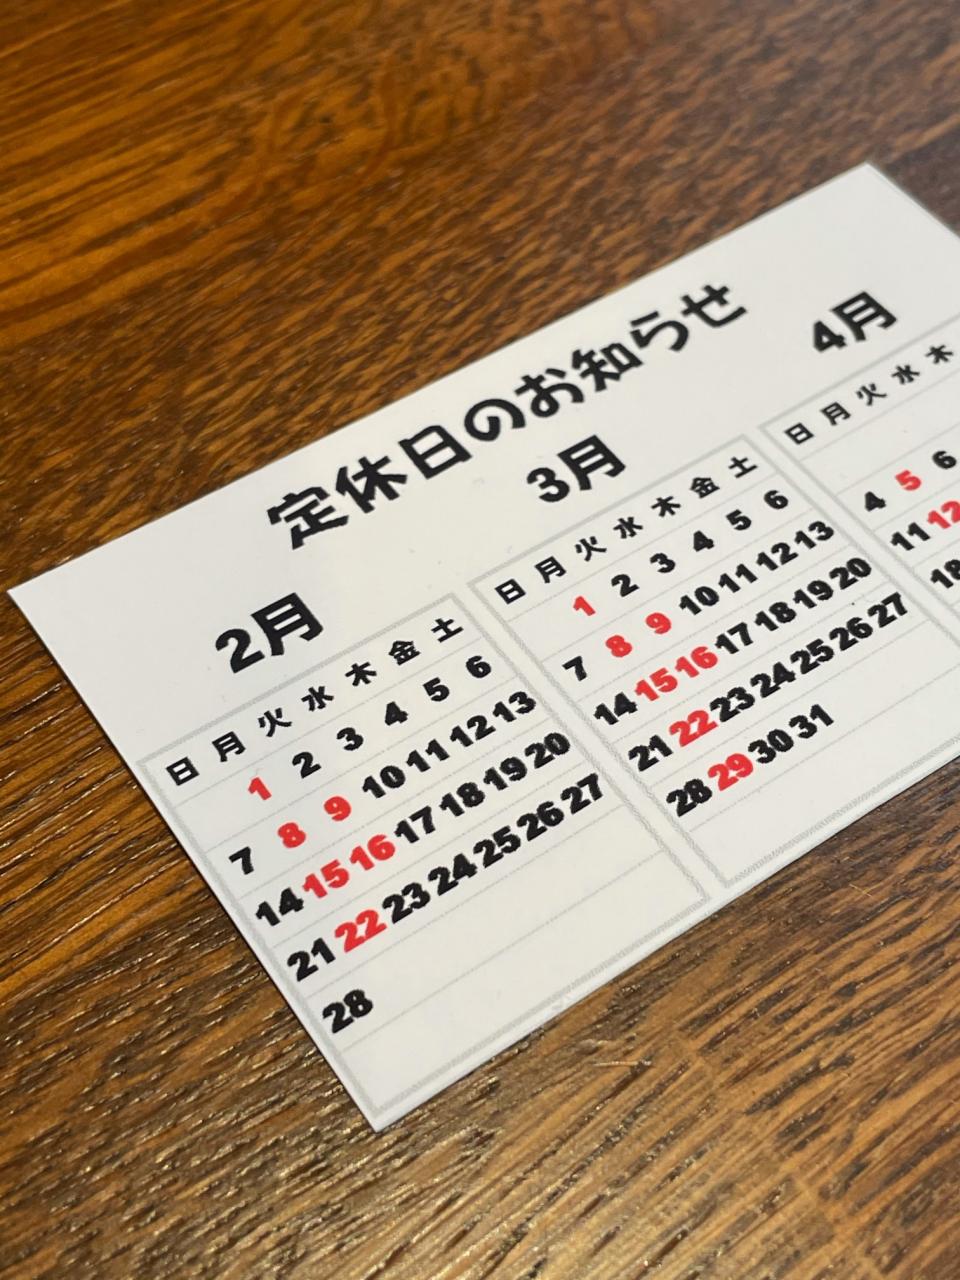 定休日のお知らせ
2月
日 月 火 水 木 金 土
1 2 3 4 5 6
7 8 9 10 11 12 13
14 15 16 17 18 19 20
21 22 23 24 25 26 27
28
3月
日 月 火 水 木 金 土
1 2 3 4 5 6
7 8 9 10 11 12 13
14 15 16 17 18 19 20
21 22 23 24 25 26 27
28 29 30 31
4月
日 月 火 水 木
4 5 6
11 12
18